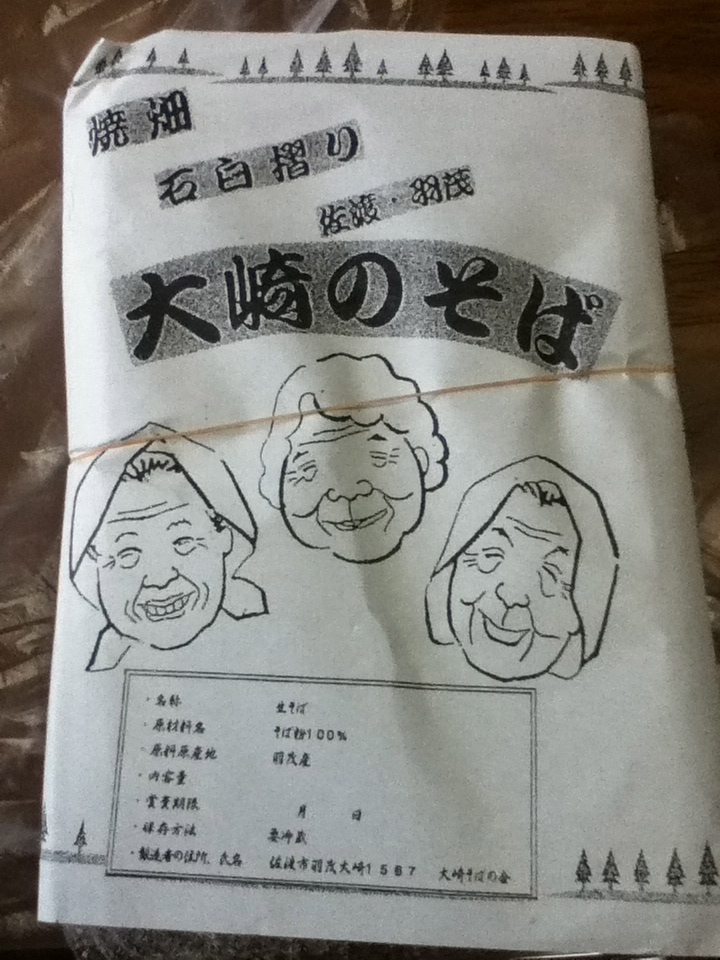 焼畑
石臼摺り
佐渡・羽茂
大崎のそば
・名称 生そば
・原材料名 そば粉100%
・原料原産地 羽茂産
・内容量
・賞費期限 月 日
・保存方法 要冷蔵
・製造者の住所、氏名 佐渡市羽茂大崎1567 大崎そばの会